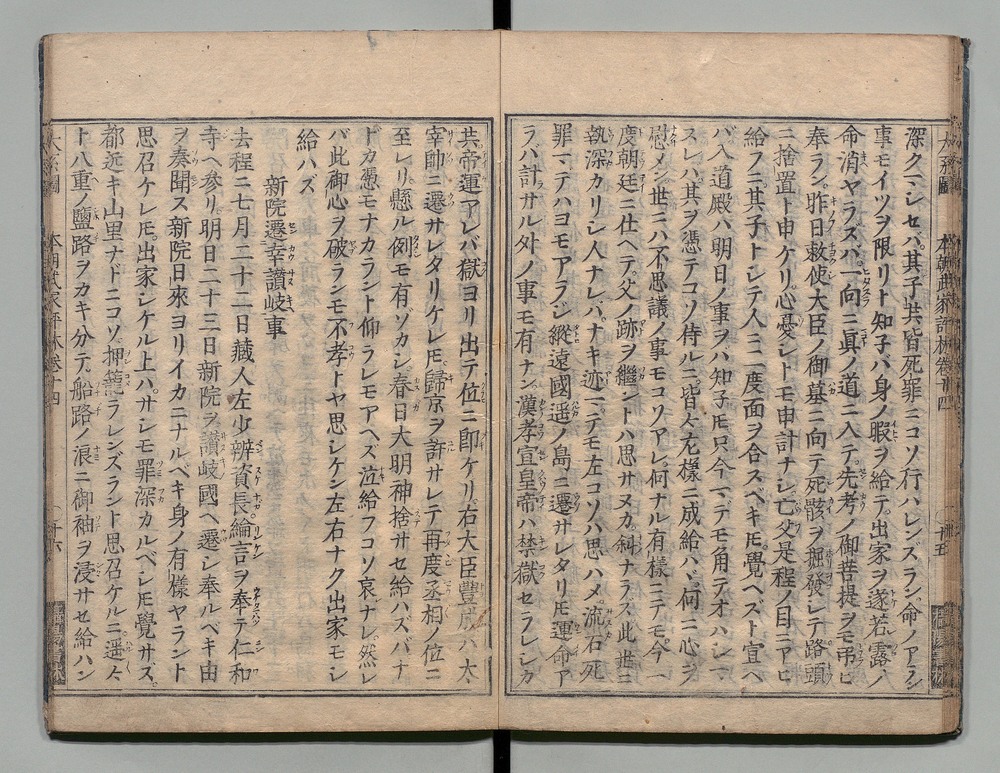 深クマシセバ其子共皆死罪ニコソ行ハレンズラン命ノアラン
事モイツヲ限リト知子バ身ノ暇ヲ給テ出家ヲ遂若露ノ
命消ヤラズハ一向ニ眞ノ道ニ入テ先考ノ御菩提ヲモ弔ヒ
奉ラン昨日敕使大臣ノ御墓ニ向テ死骸ヲ掘發シテ路頭
ニ捨置ト申ケリ心憂シトモ申計ナシ亡父是程ノ目ニアヒ
給フニ其子トシテ人ニ二度面ヲ合スベキ𪜈覺ヘズト宣ヘ
バ入道殿ハ明日ノ事ヲハ知子𪜈只今マデモ角テオハシマ
スレハ其ヲ憑テコソ侍ルニ皆々左樣ニ成給ハヾ何ニ心ヲ
慰メン世ニハ不思議ノ事モコソアレ何ナル有樣ニテモ今一
度朝廷ニ仕ヘテ父ノ跡ヲ繼ントハ思サヌカ斜ナラズ此世ニ
執深カリシ人ナレバナキ迹マデモ左コソハ思ハメ流石死
罪マデハヨモアラジ縱遠國遥ノ島ニ遷サレタリ𪜈運命ア
ラバ計サル外ノ事モ有ナン漢孝宣皇帝ハ禁獄セラレシカ
共帝運アレバ獄ヨリ出テ位ニ即ケリ右大臣豐成ハ太
宰帥ニ遷サレタリケレ𪜈歸京ヲ許サレテ再度丞相ノ位ニ
至レリ懸ル例モ有ゾカシ春日大明神捨サセ給ハズバナ
ドカ憑モナカラント仰ラレモアヘズ泣給フコソ哀ナレ然レ
バ此御心ヲ破ランモ不孝トヤ思シケン左右ナク出家モシ
給ハズ
新院遷幸讃岐事
去程ニ七月二十二日藏人左少辨資長綸言ヲ奉テ仁和
寺ヘ參リ明日二十三日新院ヲ讃岐國ヘ遷シ奉ルベキ由
ヲ奏聞ス新院日來ヨリイカニナルベキ身ノ有樣ヤラント
思召ケレ𪜈出家シケル上ハサシモ罪深カルベシ𪜈覺サズ
都近キ山里ナドニコソ押籠ラレンズラント思召ケルニ遥々
ト八重ノ鹽路ヲカキ分テ船路ノ浪ニ御袖ヲ浸サセ給ハン